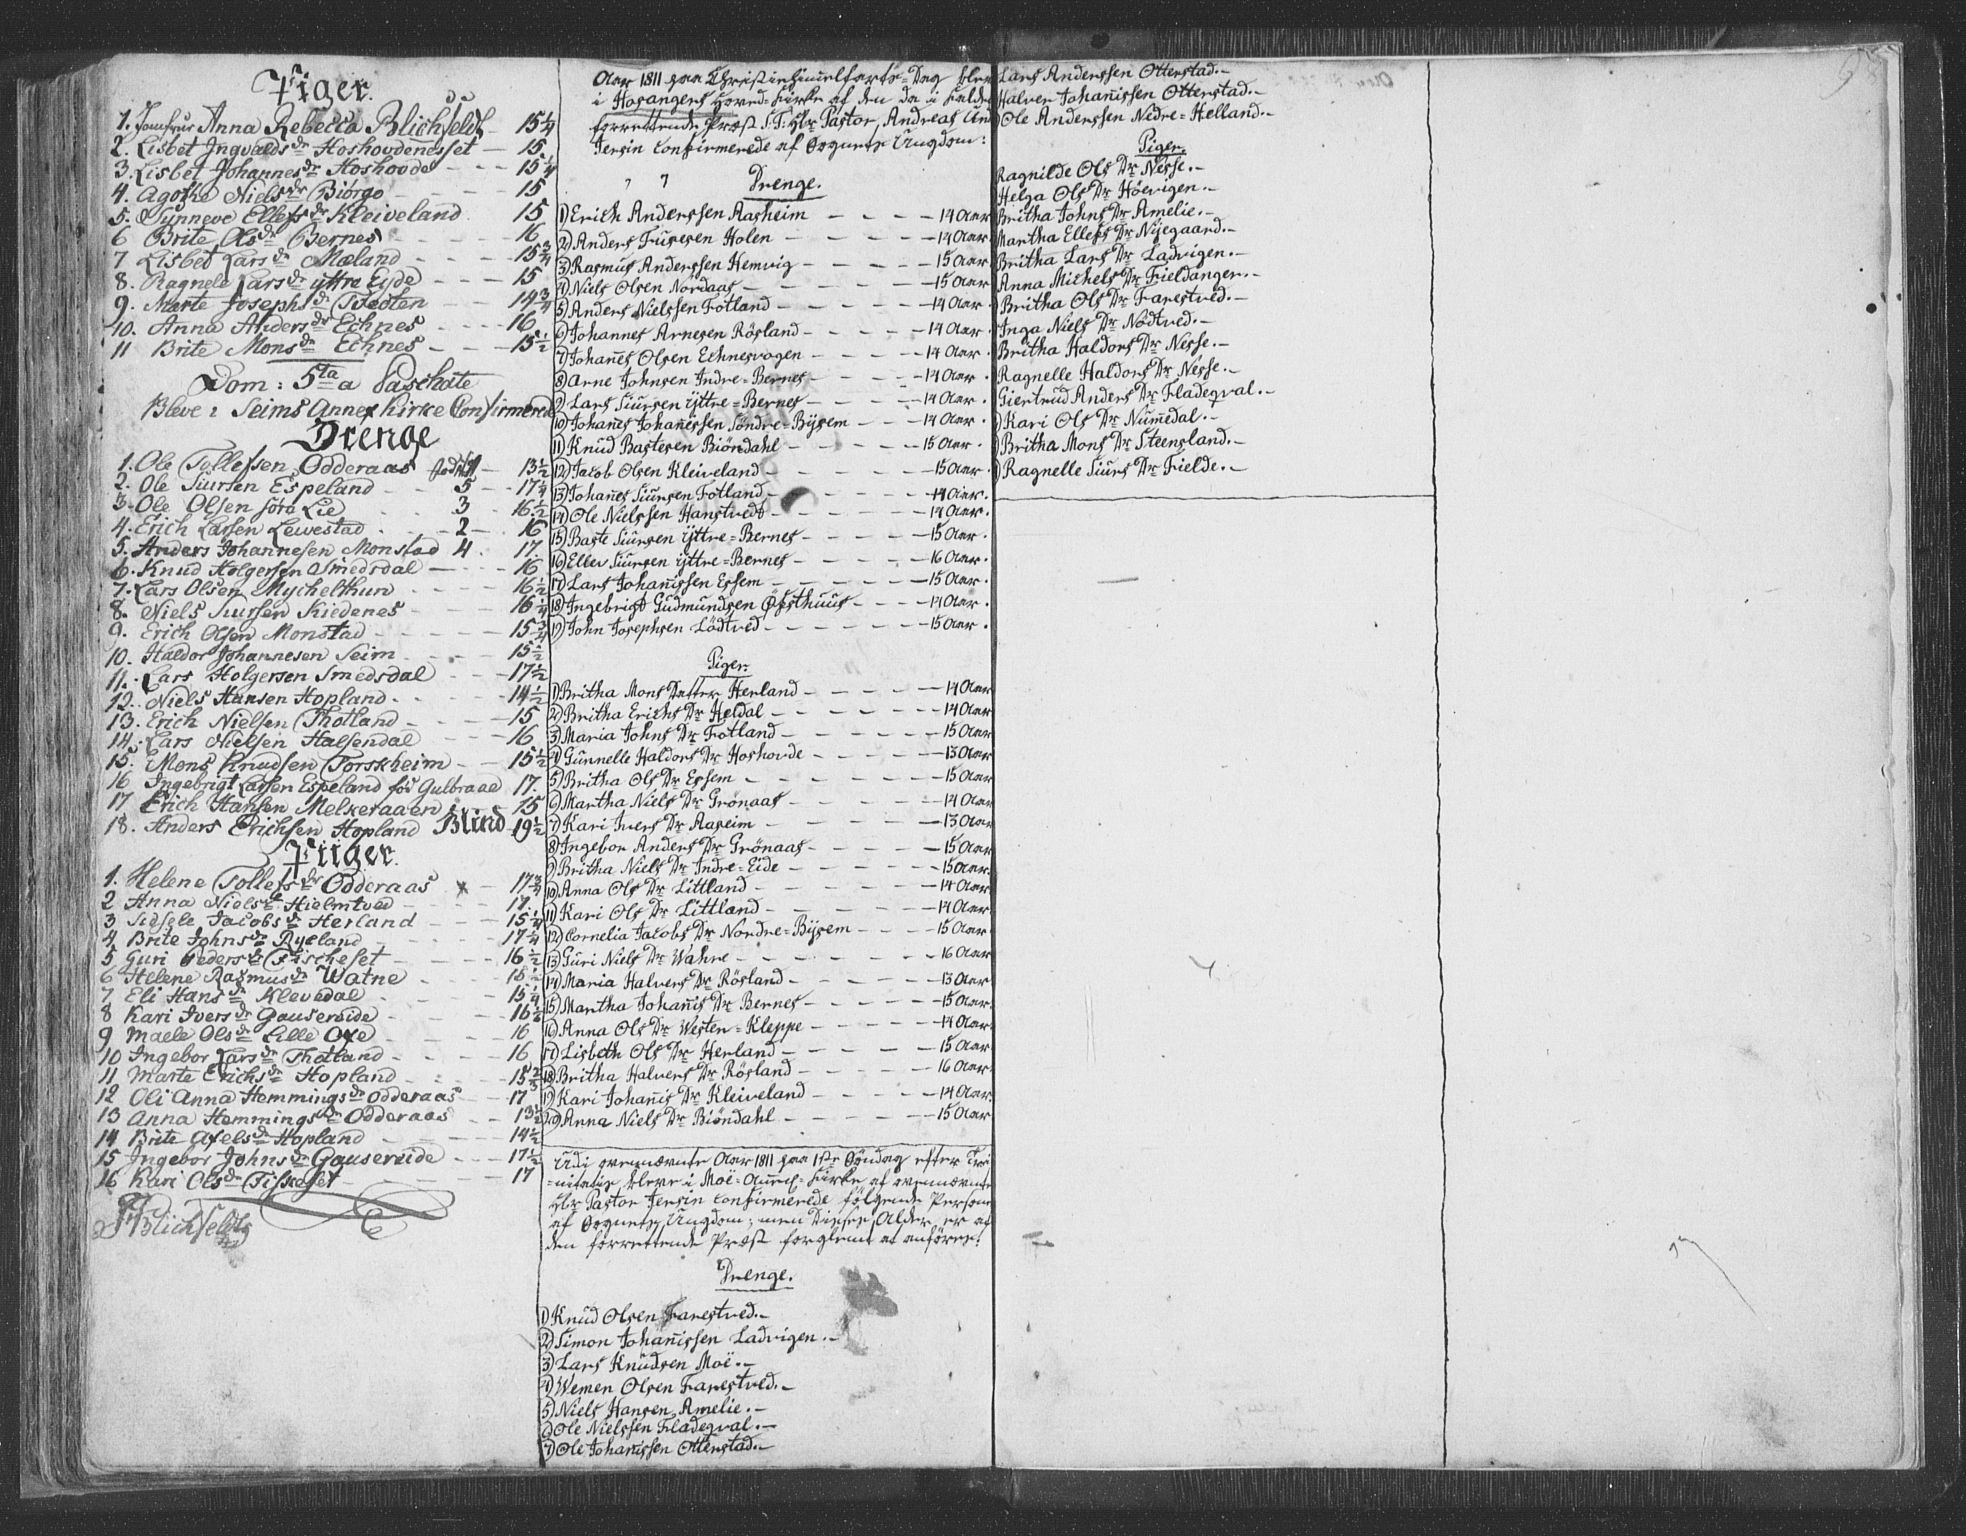 Piger.
1. Jomfrue Anna Rebecca Blichfeldt - 15 1/4
2. Lisbet Ingvaldsdr Hoshovdenesset - 15
3. Lisbet Johannesdr Hoshovde - - 15 1/4
4. Agothe Nielsdr Biørgo - - - 15
5. Synneve Ellefsdr Kleiveland 15
6 Brite Olsdr Bernes - - - 16
7 Lisbet Larsdr Mæland - - - 15 3/4
8. Ragnele Larsdr yttre Eyde - - - 15
9. Marte Josephsdr Tvedten - - 14 3/4
10. Anna Andersdr Echnes - - - 16
11 Brite Monsdr Echnes - - - 15 1/2
Dom: 5ta a Paschate
Bleve i Seims Annex Kirke Confirmerede
Drenge
1. Ole Tollefsen Odderaas - 13 1/2
2. Ole Siursen Espeland - - 5 - 17 1/4
3. Ole Olsen Lie 3 16 1/2
4. Erich Larsen Lewestad - - 2 - 16
5. Anders Johannesen Monstad 4. 17.
6. Knud Holgersen Smedsdal - - - 16
7. Lars Olsen Myckelthun - - - 16 1/2
8. Niels Siursen Kiedenes - - - 16 1/4
9. Erich Olsen Monstad - - - 15 3/4
10. Haldor Johannesen Seim - - - 15 1/2
11. Lars Holgersen Smedsdal - - 17 1/2
12. Niels Hansen Hopland - - - 14 1/2
13. Erich Nielsen Thotland - - - 15
14. Lars Nielsen Halsendal - - - 16
15. Mons Knudsen Torskheim - - 15 1/2
16 Ingebrigt Larsen Espeland før Gulbraae 17.
17 Erich Hansen Melkeraaen - 15
18. Anders Erichsen Hopland Blind - 19 1/2
Piiger.
1. Helene Tollefsdr Odderaas x - 17 3/4
2 Anna Nielsdr Hielmtved - - - 17.
3 Sidsele Jacobsdr Herland - - - 15 1/4
4 Brite Johnsdr Ryeland - - - 17 1/4
5 Guri Pedersdr Fischeset - - - 16 1/2
6 Helene Rasmusdr Watne - - - 15 1/2
7 Eli Hansdr Klevedal - - - 15 1/4
8 Kari Iversdr Gausereide - - - 16 1/2
9 Maele Olsdr Lille Oxe - - - 16
10 Ingebor Larsdr Thotland - - - 16
11 Marte Erichsdr Hopland - - - 15 2/3
12 Oli Anna Hemmingsdr Odderaas - - 17
13 Anna Hemmingsdr Odderaas - - 13 1/2
14 Brite Axelsdr Hopland - - - 14 1/2
15 Ingebor Johnsdr Gausereide - - - 17 1/2
16 Kari Olsdr Fisskeset - - - 17
Blichfeldt
Aar 1811 paa Christi Himmelfarts-Dag blev
i Hosangers Hoved-Kirke af den da i Kaldet
forrettende Præst S.T. Hr Pastor Andreas Und
Jersin Confirmerede af Sognets Ungdom:
Drenge.
1) Erich Anderssen Aasheim - - - - 14 Aar
2) Anders Siursen Holen - - - - 14 Aar
3) Rasmus Anderssen Hemvig - - - 15 Aar
4) Niels Olsen Nordaas - - - - 15 Aar
5) Anders Nielssen Fotland - - - - 14 Aar
6) Johannes Arnesen Rösland - - - - 14 Aar.
7) Johañes Olsen Echnesvogen - - - 14 Aar.
8) Arne Johnsen Indre-Bernes - - - 14 Aar.
9) Lars Siursen Yttre-Bernes - - - 14 Aar.
10) Johañes Johañessen Søndre-Bysem - - 14 Aar.
11) Knud Bastesen Biöndahl - - - 15 Aar.
12) Jacob Olsen Kleiveland - - - 15 Aar.
13) Johañes Siursen Fotland - - - 14 Aar.
14) Ole Nielssen Hanstvedt - - - 14 Aar.
15) Baste Siursen Yttre-Bernes - - - 15 Aar.
16) Ellev Siursen Yttre-Bernes - - - 16 Aar.
17) Lars Johañissen Essem - - - 15 Aar.
18) Ingebrigt Gudmundsen Øfsthuus - - 14 Aar.
19) John Josephsen Lödtved - - - 15 Aar.
Piger.
1) Britha Mons Datter Herland - - - 14 Aar
2) Britha Erichs Dr Heldal - - - 14 Aar
3) Maria Johns Dr Fotland - - - 15 Aar
4) Gunnelle Haldors Dr Hoshovde - - 13 Aar
5) Britha Ols Dr Essem - - - 15 Aar
6) Martha Niels Dr Grönaas - - - 14 Aar
7) Kari Ivers Dr Aaseim - - - 13 Aar.
8) Ingebor Anders Dr Grönaas - - - 15 Aar.
9) Britha Niels Dr Indre-Eide - - - 15 Aar.
10) Anna Ols Dr Littland - - - 14 Aar.
11) Kari Ols Dr Littland - - - 14 Aar.
12) Cornelia Jacobs Dr Nordre-Bysem - - 15 Aar.
13) Guri Niels Dr Wahre - - - 16 Aar
14) Maria Halvers Dr Rösland - - - 13 Aar
15) Martha Johañis Dr Bernes - - - 15 Aar.
16) Anna Ols Dr Wester-Kleppe - - - 14 Aar.
17) Lisbeth Ols Dr Herland - - - 15 Aar.
18) Britha Halvers Dr Rösland - - - 16 Aar.
19) Kari Johañis Dr Kleiveland - - - 14 Aar.
20) Anna Niels Dr Biöndahl - - - 15 Aar
Udi ovennævnte Aar 1811 paa 1ste Söndag efter Tri
=nitatis bleve i Moë-Annex-Kirke af ovennævnte
Hr Pastor Jersin Confirmerede følgende Persone
af Sognets Ungdom; men Disses Alder er af
den forrettende Præst forglemt at anføres:
Drenge.
1) Knud Olsen Farestved.-
2) Simon Johañissen Ladvigen.-
3) Lars Knudsen Moë.-
4) Wemen Olsen Farestved.-
5) Niels Hansen Amelie.-
6) Ole Nielssen Fladeqval.-
7) Ole Johañissen Otterstad.-
Lars Anderssen Otterstad.-
Halver Johañissen Otterstad.-
Ole Anderssen Nedre-Helland.-
Piger.
Ragnilde Ols Dr Nesse.-
Helga Ols Dr Höevigen.-
Britha Johns Dr Amelie.-
Martha Ellefs Dr Nyegaard.-
Britha Lars Dr Ladvigen.-
Anna Michels Dr Fieldanger.-
Britha Ols Dr Farestved.-
Inga Niels Dr Nödtved.-
Britha Haldors Dr Nesse.-
Ragnelle Haldors Dr Nesse.-
Giertrud Anders Dr Fladeqval.-
Kari Ols Dr Numedal.-
Britha Mons Dr Steensland.-
Ragnelle Siurs Dr Fielde.-